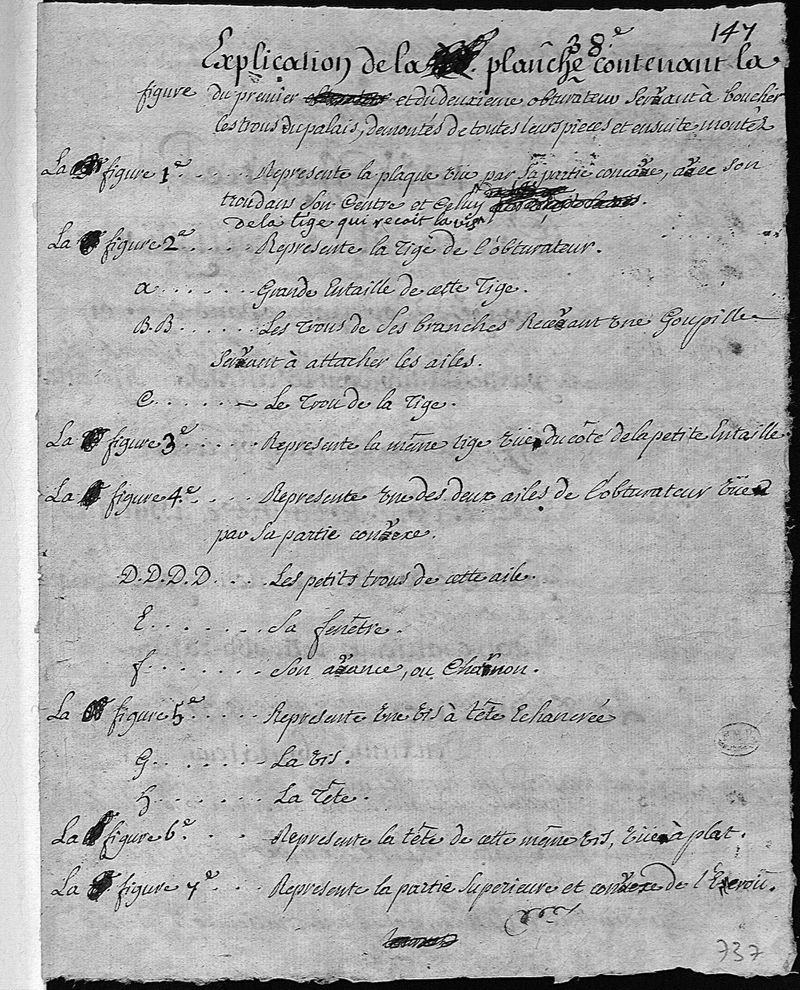 147
38.e
Explication de la planche contenant la
figure du premier et du deuxieme obturateur servant à boucher
les trous du palais, demontés de toutes leurs pieces et ensuite montéz
La figure 1e. . . . . Represente la plaque vüe par sa partie concave, avec son
trou dans son Centre et Celuy
de la tige qui recoit la vis
La figure 2e . . . . . Represente la Tige de l'obturateur.
a . . . . . . . Grande Entaille de cette Tige.
B.B . . . . . . Les Trous de Ses branches Recevant vne Goupille
servant à attacher les ailes.
C . . . . . . Le Trou de la Tige.
La figure 3e . . . . . Represente la même tige vüe du côté de la petite Entaille
La figure 4.e . . . . Represente vne des deux ailes de l'obturateur vüe
par sa partie convexe.
D.D.D.D . . . . Les petits trous de cette aile.
E . . . . . . . Sa fenêtre.
f . . . . . . . Son avance, ou Charnon.
La figure 5e . . . . . Represente vne vis à tête Echancrée
G . . . . . . . La vis.
h . . . . . . . La Tête.
La figure 6e . . . Represente la tête de cette même vis, vüe à plat.
La figure 7e . . . Represente la partie Superieure et convexe de l'Ecroü.
737